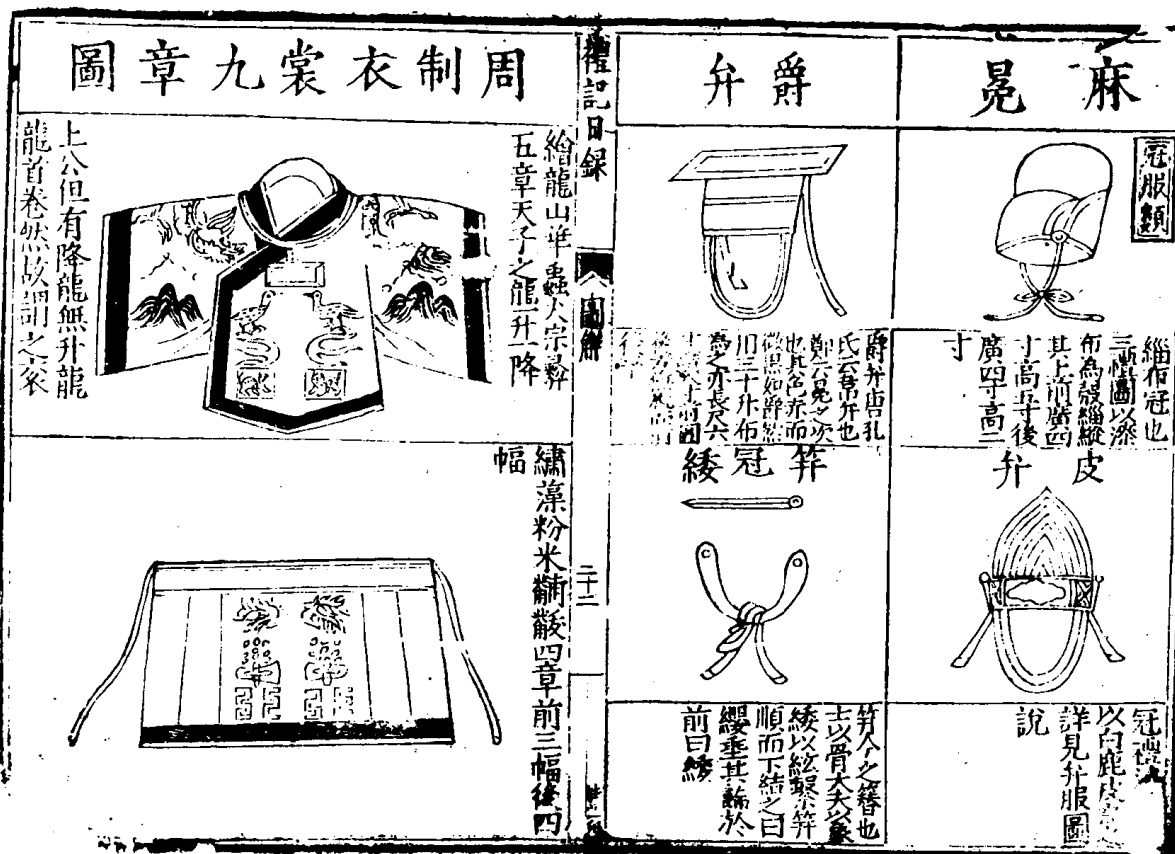 麻冕
冠服類
緇布冠也
三禮圖以漆
布為殼緇縰
其上前廣四
寸高五寸後
廣四寸高三
寸
皮弁
冠禮
以白鹿皮為之
詳見弁服圖
說
爵弁
爵弁唐孔
氏云常弁也
鄭云冕之次
也其色赤而
微黑如爵然
用三十升布
為之亦長尺六
笄冠緌
笄今之簪也
士以骨大夫以象
緌以紘繫笄
順而下結之曰
纓垂其餘於
前曰緌
禮記目錄
圖
二十二
周制衣裳九章圖
繪龍山華蟲火宗彝
五章天子之龍一升一降
上公但有降龍無升龍
龍首卷然故謂之袞
繡藻粉米黼黻四章前三幅後四
幅